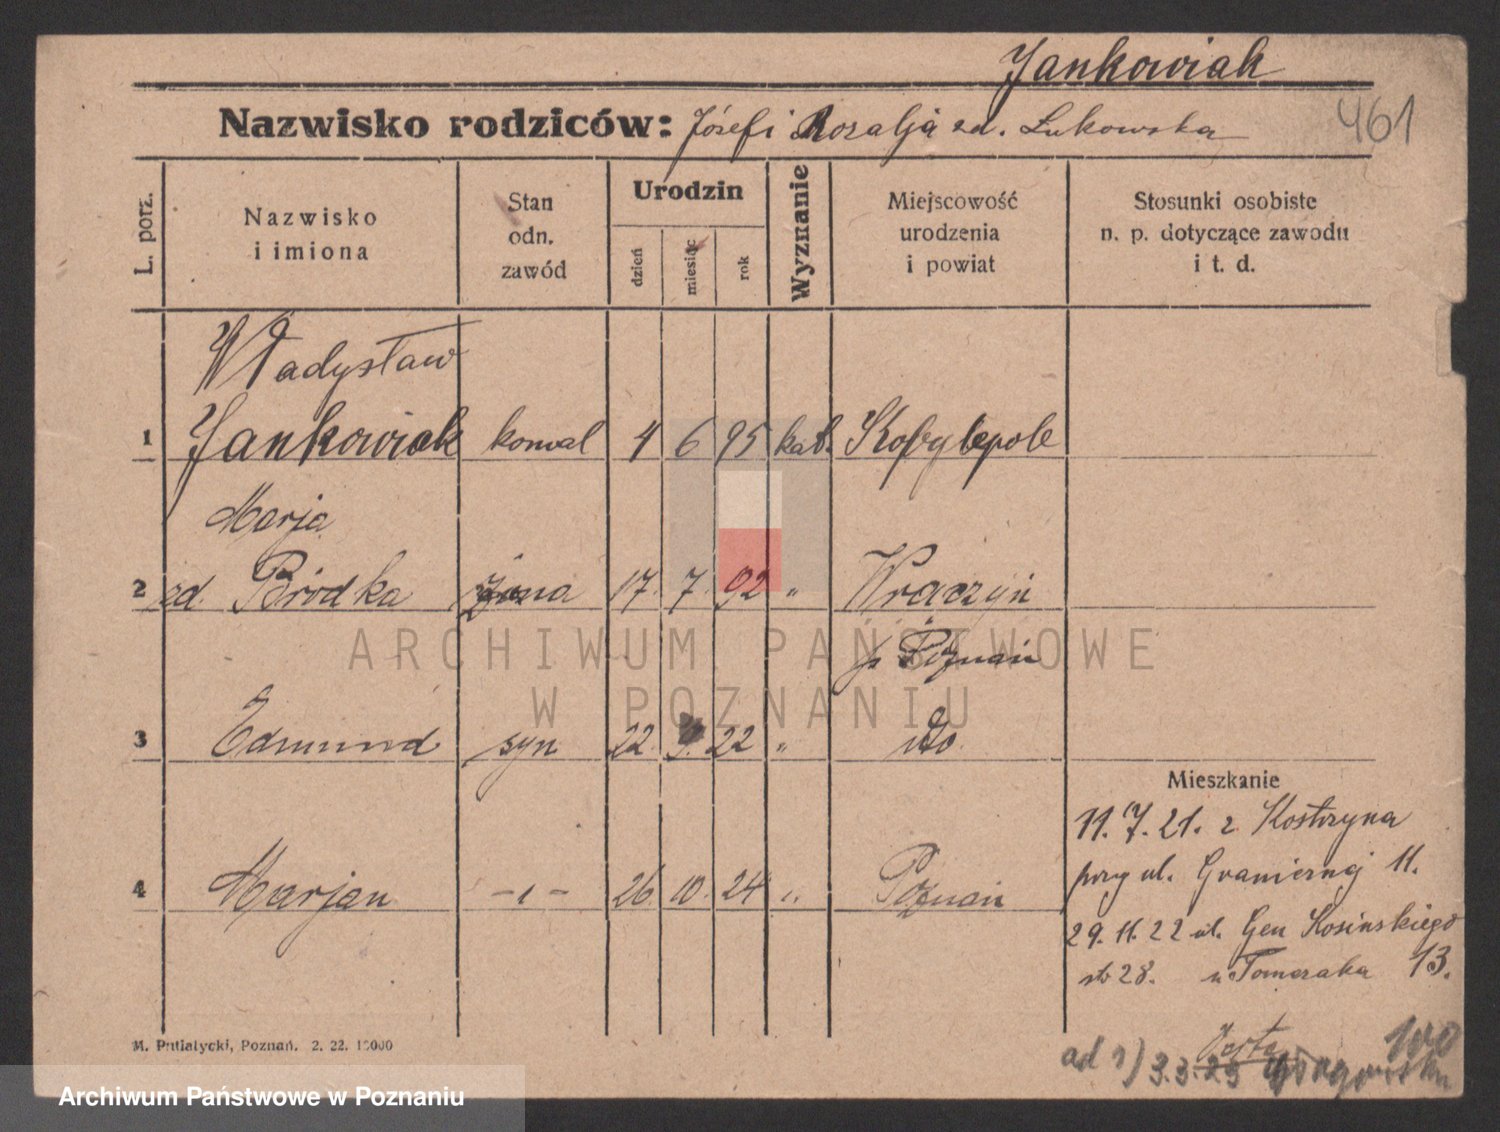 Jankowiak
461
Nazwisko rodziców: Józef i Rozalja zd. Lukowska
L. porz.
Nazwisko
i imiona
Stan
odn.
zawód
Urodzin
dzień
miesiąc
rok
Wyznanie
Miejscowość
urodzenia
i powiat
Stosunki osobiste
n. p. dotyczące zawodu
i t. d.
Władysław
1 Jankowiak kowal 4 6 95 kat. Kobylepole
Marja
2 zd. Bródka żona 17. 7. 92 " Wraczyń
p. Poznań
3 Edmund syn 22. 22 " dto.
Mieszkanie
11. 7. 21. z Kostrzyna
4 Marjan -"- 26. 10. 24 " Poznań
przy ul. Granicznej 11.
29. 11. 22 ul. Gen Kosinskiego
28. u Tomczaka 13.
ad 1) 3.3.25
M. Putiatycki, Poznań. 2. 22. 10000
ARCHIWUM PAŃSTWOWE
W POZNANIU
Archiwum Państwowe w Poznaniu